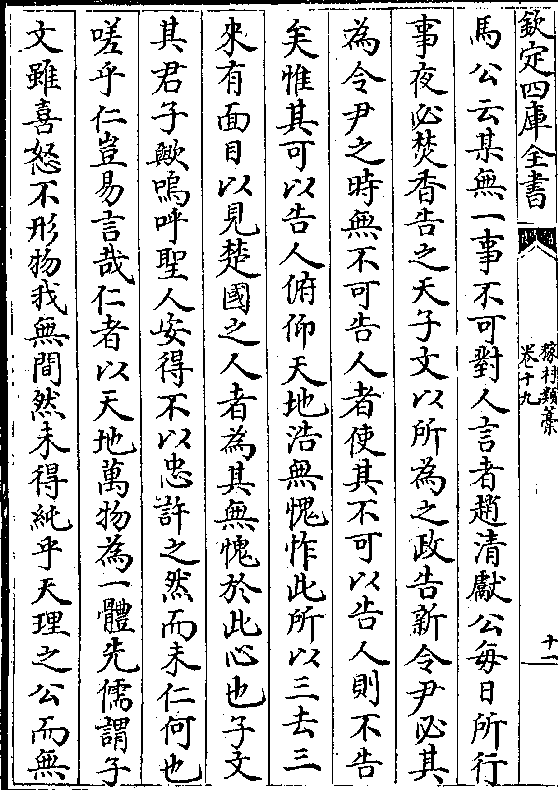 欽定四庫全書
稼村類藁
卷十九
十一
馬公云某無一事不可對人言者趙清獻公每日所行
事夜必焚香告之天子文以所為之政告新令尹必其
為令尹之時無不可告人者使其不可以告人則不告
矣惟其可以告人俯仰天地浩無愧怍此所以三去三
來有面目以見楚國之人者為其無愧於此心也子文
其君子歟嗚呼聖人安得不以忠許之然而未仁何也
嗟乎仁豈易言哉仁者以天地萬物為一體先儒謂子
文雖喜怒不形物我無間然未得純乎天理之公而無